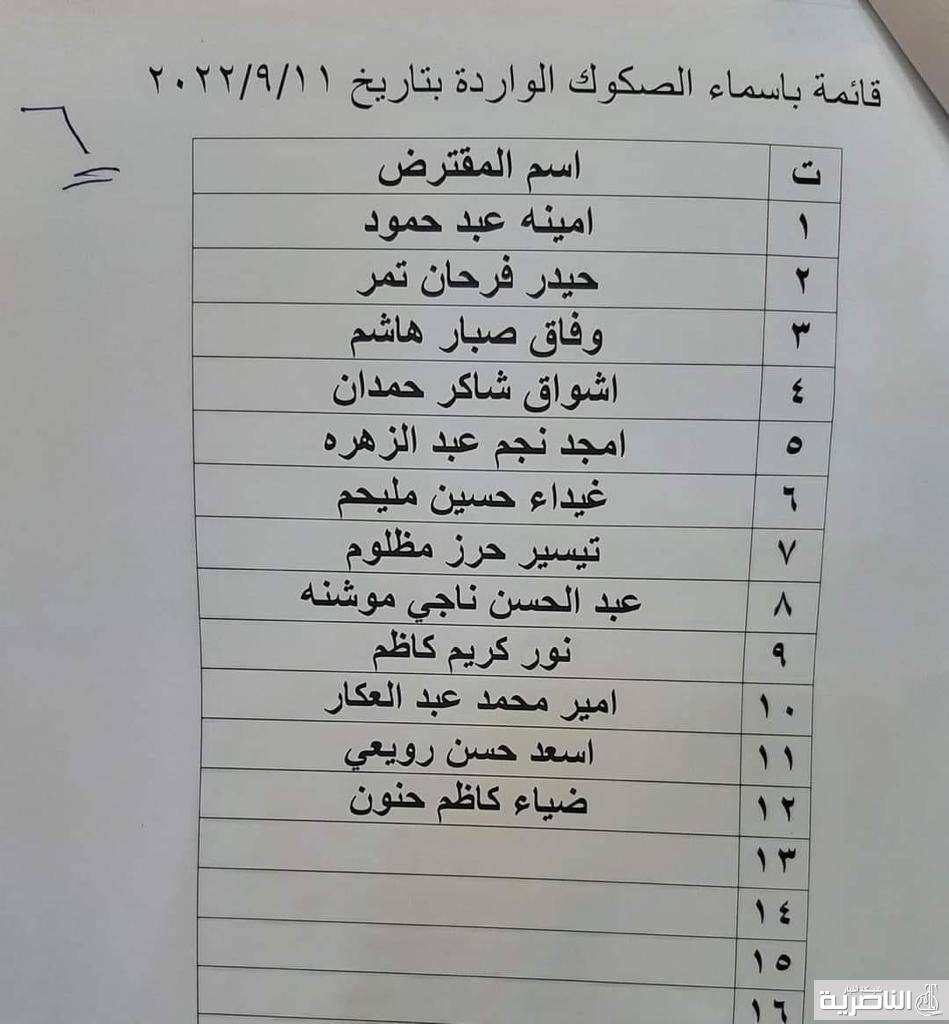 قائمة باسماء الصكوك الواردة بتاريخ ٢٠٢٢/٩/١١
٦
ت اسم المقترض
١ امينه عبد حمود
٢ حيدر فرحان تمر
٣ وفاق صبار هاشم
٤ اشواق شاكر حمدان
٥ امجد نجم عبد الزهره
٦ غيداء حسين مليحم
٧ تيسير حرز مظلوم
٨ عبد الحسن ناجي موشنه
٩ نور كريم كاظم
١٠ امير محمد عبد العكار
١١ اسعد حسن رويعي
١٢ ضياء كاظم حنون
١٣
١٤
١٥
١٦
شبكة اخبار
الناصرية